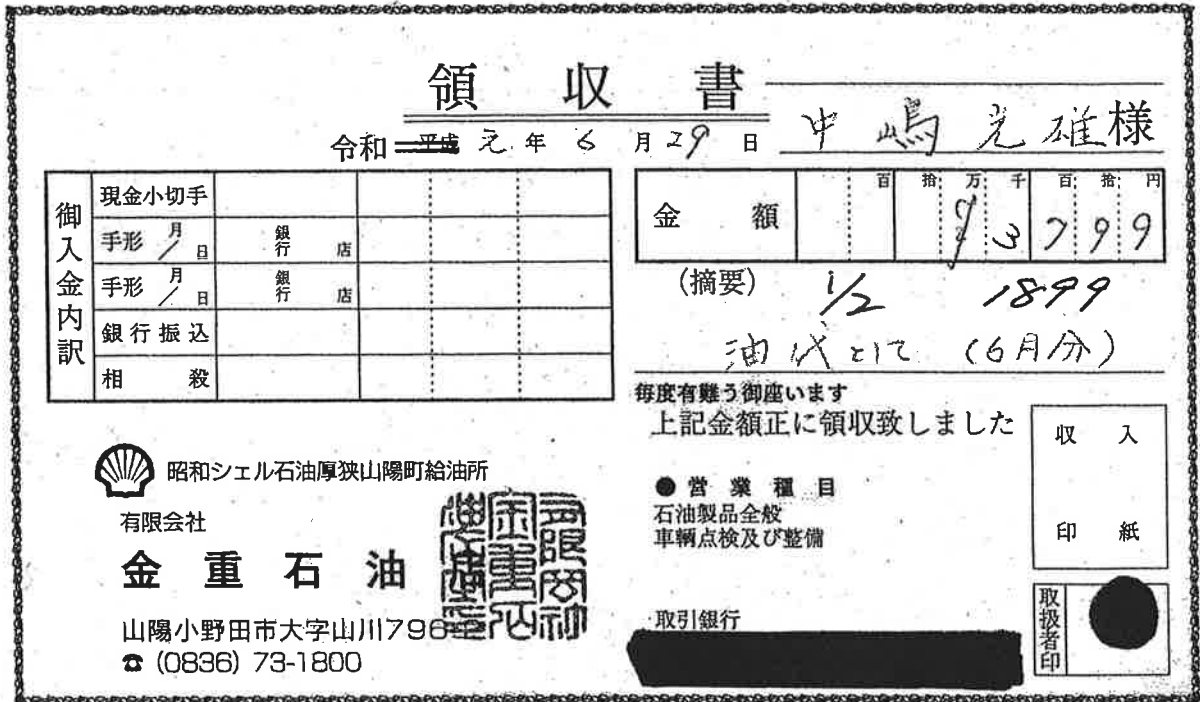 領収書
中嶋光雄様
令和 平成 元年 6月 29日
御入金内訳
現金小切手
手形 月/日 銀行 店
手形 月/日 銀行 店
銀行振込
相殺
金額 百 拾 万 千 百 拾 円
3799
(摘要) 1/2 1899
油代として (6月分)
毎度有難う御座います
上記金額正に領収致しました
収入
印紙
昭和シェル石油厚狭山陽町給油所
有限会社
金重石油店
山陽小野田市大字山川796
☎ (0836) 73-1800
●営業種目
石油製品全般
車輌点検及び整備
取引銀行
取扱者印